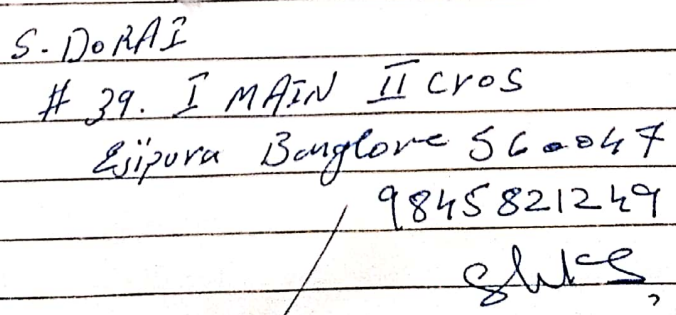 S. DORAI
# 39. I MAIN II Cros
Esipura Banglore 560047
9845821249